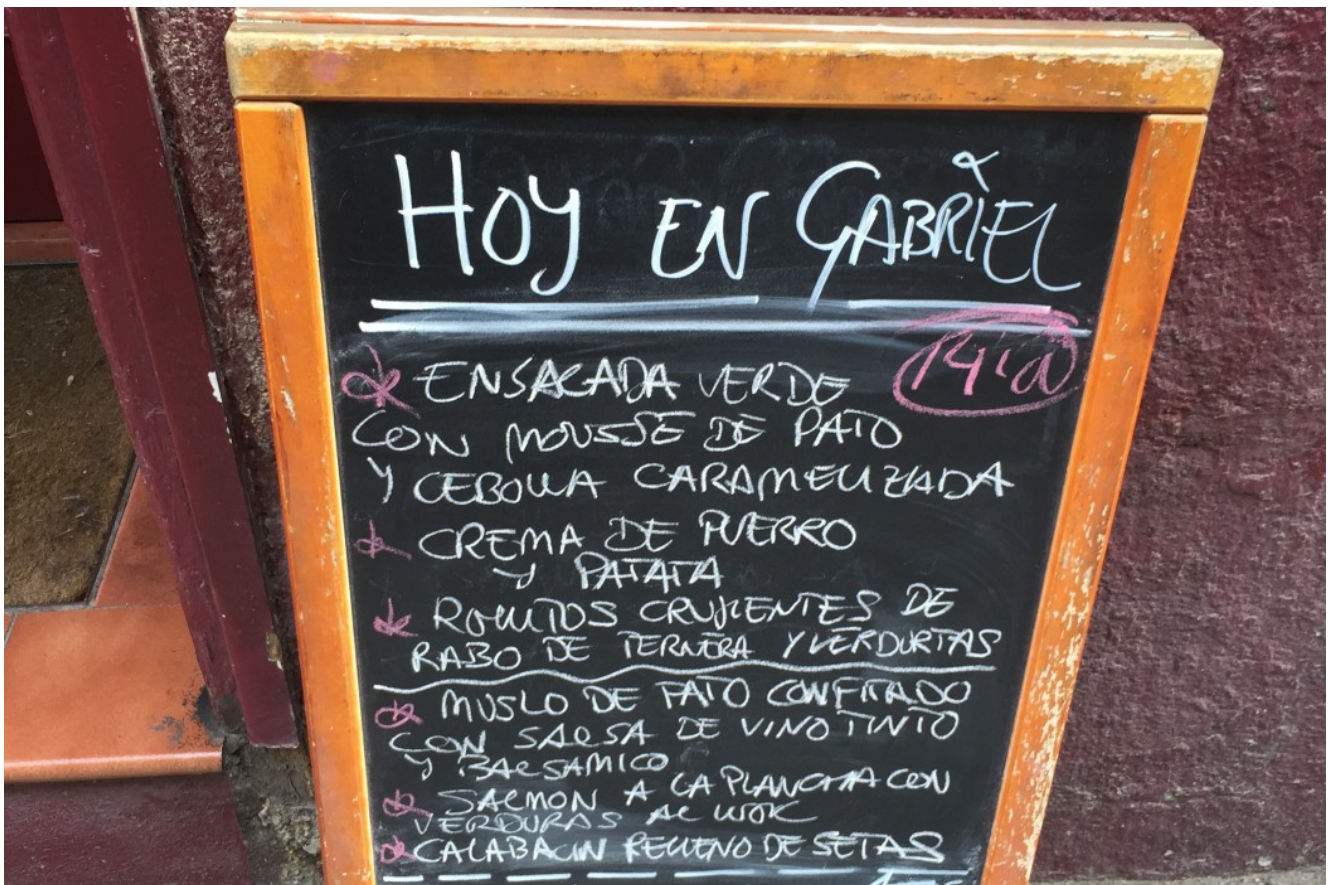 HOY EN GABRIEL
ENSALADA VERDE
CON MOUSSE DE PATO
Y CEBOLLA CARAMELIZADA
CREMA DE PUERRO
Y PATATA
CRUJIENTES DE
RABO DE TERNERA Y VERDURITAS
MUSLO DE PATO CONFITADO
CON SALSA DE VINO TINTO
Y BALSAMICO
SALMON A LA PLANCHA CON
VERDURAS AL WOK
CALABACIN RELLENO DE SETAS